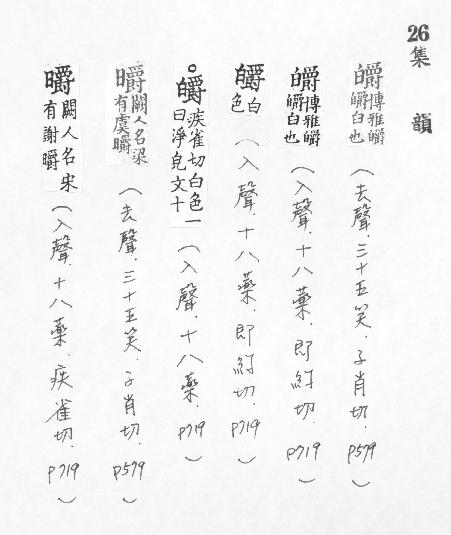 26集韻
皭博雅皭皭白也(去聲.三十五笑.子肖切.P579)
皭博雅皭皭白也(入聲.十八藥.即約切.P719)
皭白色(入聲.十八藥.即約切.P719)
。皭疾雀切白色一曰淨皃文十(入聲.十八藥.P719)
㬭闕人名梁有虞㬭(去聲.三十五笑.子肖切.P579)
㬭闕人名宋有謝㬭(入聲.十八藥.疾雀切.P719)